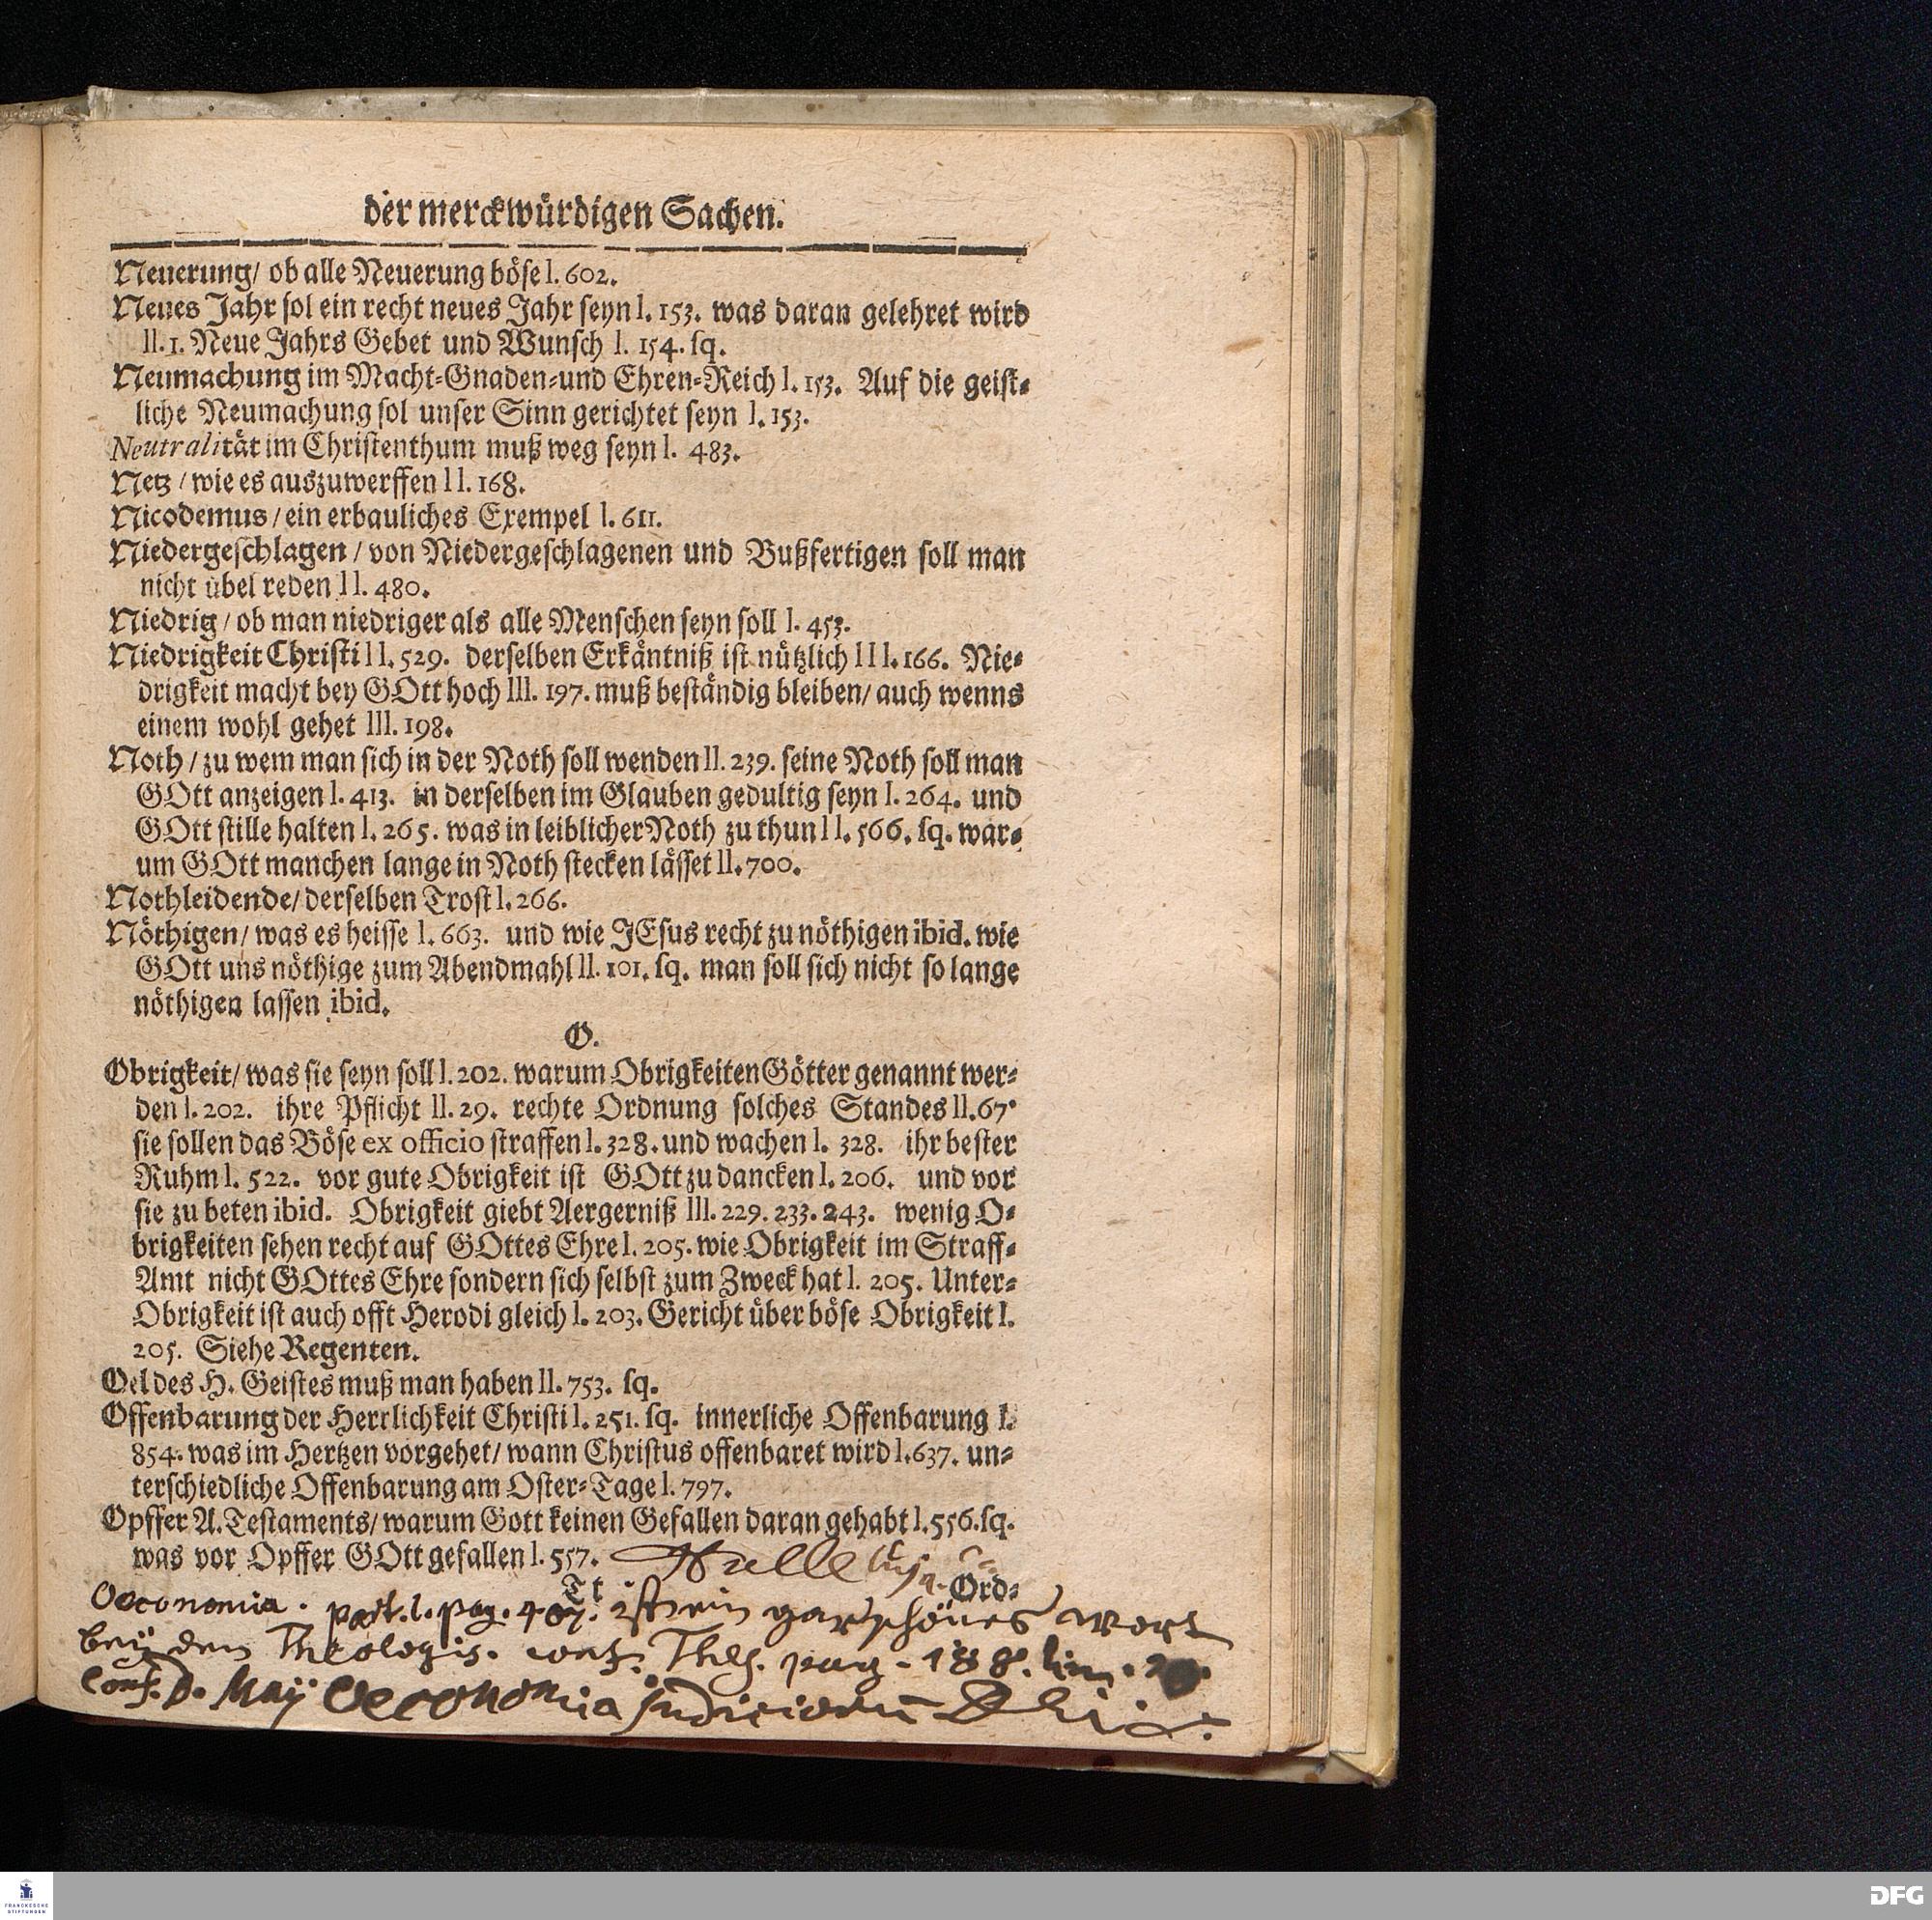 der merckwürdigen Sachen.
Neuerung/ ob alle Neuerung böse l. 602.
Neues Jahr sol ein recht neues Jahr seyn l. 153. was daran gelehret wird
ll. 1. Neue Jahrs Gebet und Wunsch l. 154. sq.
Neumachung im Macht-Gnaden-und Ehren-Reich l. 153. Auf die geist-
liche Neumachung sol unser Sinn gerichtet seyn l. 153.
Neutralität im Christenthum muß weg seyn l. 483.
Netz / wie es auszuwerffen ll. 168.
Nicodemus / ein erbauliches Exempel l. 611.
Niedergeschlagen / von Niedergeschlagenen und Bußfertigen soll man
nicht übel reden ll. 480.
Niedrig / ob man niedriger als alle Menschen seyn soll l. 453.
Niedrigkeit Christi ll. 529. derselben Erkäntniß ist nützlich lll. 166. Nie-
drigkeit macht bey GOtt hoch lll. 197. muß beständig bleiben/ auch wenns
einem wohl gehet lll. 198.
Noth / zu wem man sich in der Noth soll wenden ll. 239. seine Noth soll man
GOtt anzeigen l. 413. in derselben im Glauben gedultig seyn l. 264. und
GOtt stille halten l. 265. was in leiblicher Noth zu thun ll. 566. sq. war-
um GOtt manchen lange in Noth stecken lässet ll. 700.
Nothleidende/ derselben Trost l. 266.
Nöthigen/ was es heisse l. 663. und wie JEsus recht zu nöthigen ibid. wie
GOtt uns nöthige zum Abendmahl ll. 101. sq. man soll sich nicht so lange
nöthigen lassen ibid.
O.
Obrigkeit/ was sie seyn soll l. 202. warum Obrigkeiten Götter genannt wer-
den l. 202. ihre Pflicht ll. 29. rechte Ordnung solches Standes ll. 67.
sie sollen das Böse ex officio straffen l. 328. und wachen l. 328. ihr bester
Ruhm l. 522. vor gute Obrigkeit ist GOtt zu dancken l. 206. und vor
sie zu beten ibid. Obrigkeit giebt Aergerniß lll. 229. 233. 243. wenig O-
brigkeiten sehen recht auf GOttes Ehre l. 205. wie Obrigkeit im Straff-
Amt nicht GOttes Ehre sondern sich selbst zum Zweck hat l. 205. Unter-
Obrigkeit ist auch offt Herodi gleich l. 203. Gericht über böse Obrigkeit l.
205. Siehe Regenten.
Oel des H. Geistes muß man haben ll. 753. sq.
Offenbarung der Herrlichkeit Christi l. 251. sq. innerliche Offenbarung l.
854. was im Hertzen vorgehet/ wann Christus offenbaret wird l. 637. un-
terschiedliche Offenbarung am Oster-Tage l. 797.
Opffer A. Testaments/ warum Gott keinen Gefallen daran gehabt l. 556. sq.
was vor Opffer GOtt gefallen l. 557. Halleluja.
Tt Ord-
Oeconomia. part. l. pag. 407. ist ein gar schönes wort
bey den Theologis. Thes. pag. 188. lin.
Conf. D. Maji Oeconomia judiciorū